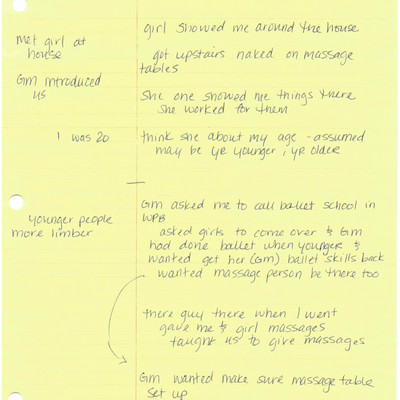 girl showed me around the house
met girl at
house
got upstairs naked on massage
tables
Gm introduced
us
She one showed me things there
She worked for them
I was 20
think she about my age - assumed
may be yr younger, yr older
Gm asked me to call ballet school in
WPB
younger people
more limber
asked girls to come over & Gm
had done ballet when younger &
wanted get her (Gm) ballet skills back
wanted massage person be there too
there guy there when I went
gave me & girl massages
taught us to give massages
Gm wanted make sure massage table
set up